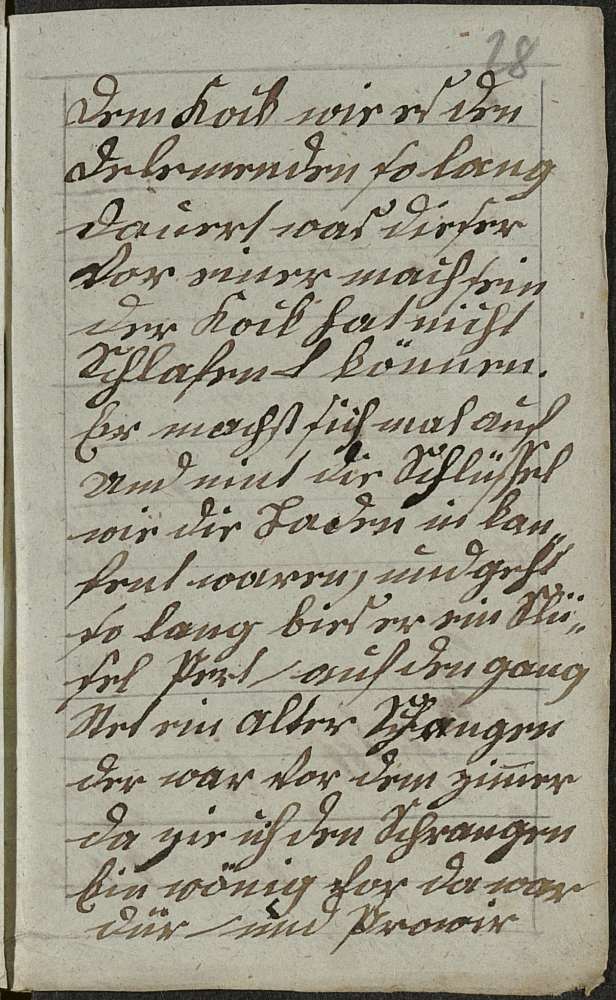 28
dem Koch wie es den
so lang
dauert was dieser
Vor einer mach sein
der Koch hat nicht
Schlafen können.
Er machst sich mal auf
und nimt die Schlüssel
wie die Laden in kan„
fent waren, und geht
so lang bies er ein Slü„
sel Pert auf den gang
Stet ein alter Schrangen
der war Vor dem zimmer
da zie ich den Schrangen
Ein wönig vor da war
dür und Prowir